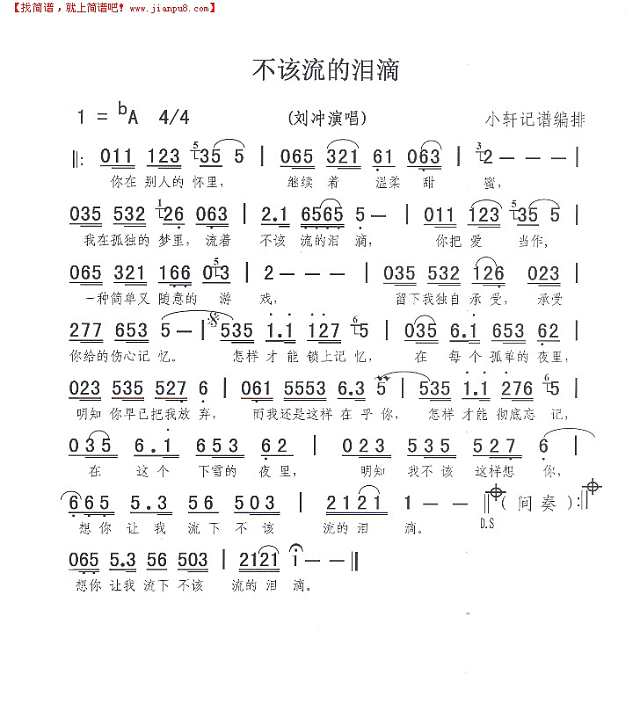 【找简谱,就上简谱吧! www.jianpu8.com】
不该流的泪滴
1 = bA 4/4 (刘冲演唱) 小轩记谱编排
‖: 011 123 5 35 5 | 065 321 61 063 | 3 2 — — — |
你在 别人的 怀里, 继续 着 温柔 甜 蜜,
035 532 1 26 063 | 2.1 6565 5 — | 011 123 5 35 5 |
我在孤独的 梦里, 流着 不该 流的泪 滴, 你把 爱 当作,
065 321 166 03 5 | 2 — — — | 035 532 126 023 |
一种简单又 随意的 游 戏, 留下我独自 承 受, 承受
277 653 5 — | 535 1.1 127 6 5 | 035 6.1 653 62 |
你给的伤心记 忆。 怎样 才能 锁上记 忆, 在 每 个 孤单的 夜里,
023 535 527 6 | 061 5553 6.3 5 | 535 1.1 276 6 5 |
明知 你早已把我放 弃, 而我还是这样 在 乎 你, 怎样 才能 彻底忘 记,
035 6.1 653 62 | 023 535 527 6 |
在 这 个 下雪的 夜 里, 明知 我不 该 这样想 你,
665 5.3 56 503 | 2121 1 — — ‖ ( 间 奏 ) :‖
想 你 让 我 流 下 不 该 流的 泪 滴。 D.S
065 5.3 56 503 | 2121 i — — ‖
想你 让我 流下 不该 流的 泪 滴。